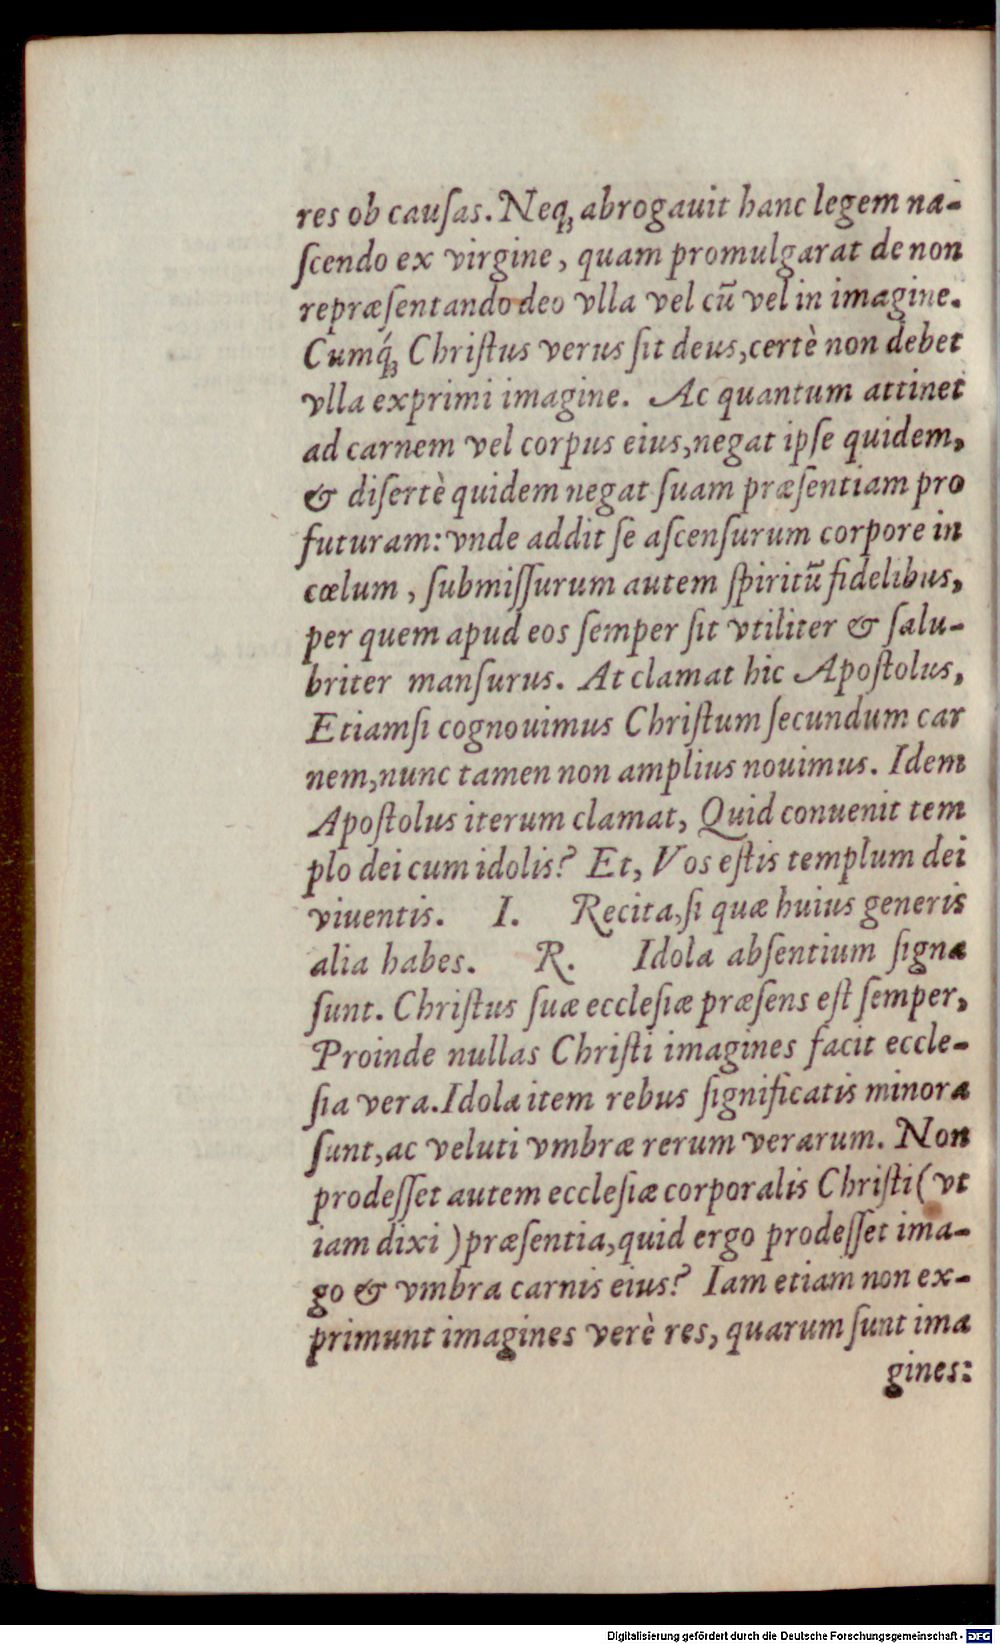 res ob cauſas. Neqꝫ abrogauit hanc legem na-
ſcendo ex virgine, quam promulgarat de non
repræſentando deo vlla vel cũ vel in imagine.
Cumq́ꝫ Chriſtus verus ſit deus, certè non debet
vlla exprimi imagine. Ac quantum attinet
ad carnem vel corpus eius, negat ipſe quidem,
& diſertè quidem negat ſuam præſentiam pro
futuram: vnde addit ſe aſcenſurum corpore in
cœlum, ſubmiſſurum autem ſpiritũ fidelibus,
per quem apud eos ſemper ſit vtiliter & ſalu-
briter manſurus. At clamat hic Apoſtolus,
Etiamſi cognouimus Chriſtum ſecundum car
nem, nunc tamen non amplius nouimus. Idem
Apoſtolus iterum clamat, Quid conuenit tem
plo dei cum idolis? Et, Vos eſtis templum dei
viuentis. I. Recita, ſi quæ huius generis
alia habes. R. Idola abſentium ſigna
ſunt. Chriſtus ſuæ eccleſiæ præſens eſt ſemper,
Proinde nullas Chriſti imagines facit eccle-
ſia vera. Idola item rebus ſignificatis minora
ſunt, ac veluti vmbræ rerum verarum. Non
prodeſſet autem eccleſiæ corporalis Chriſti (vt
iam dixi) præſentia, quid ergo prodeſſet ima-
go & vmbra carnis eius? Iam etiam non ex-
primunt imagines verè res, quarum ſunt ima
gines:
Digitalisierung gefördert durch die Deutsche Forschungsgemeinschaft - DFG